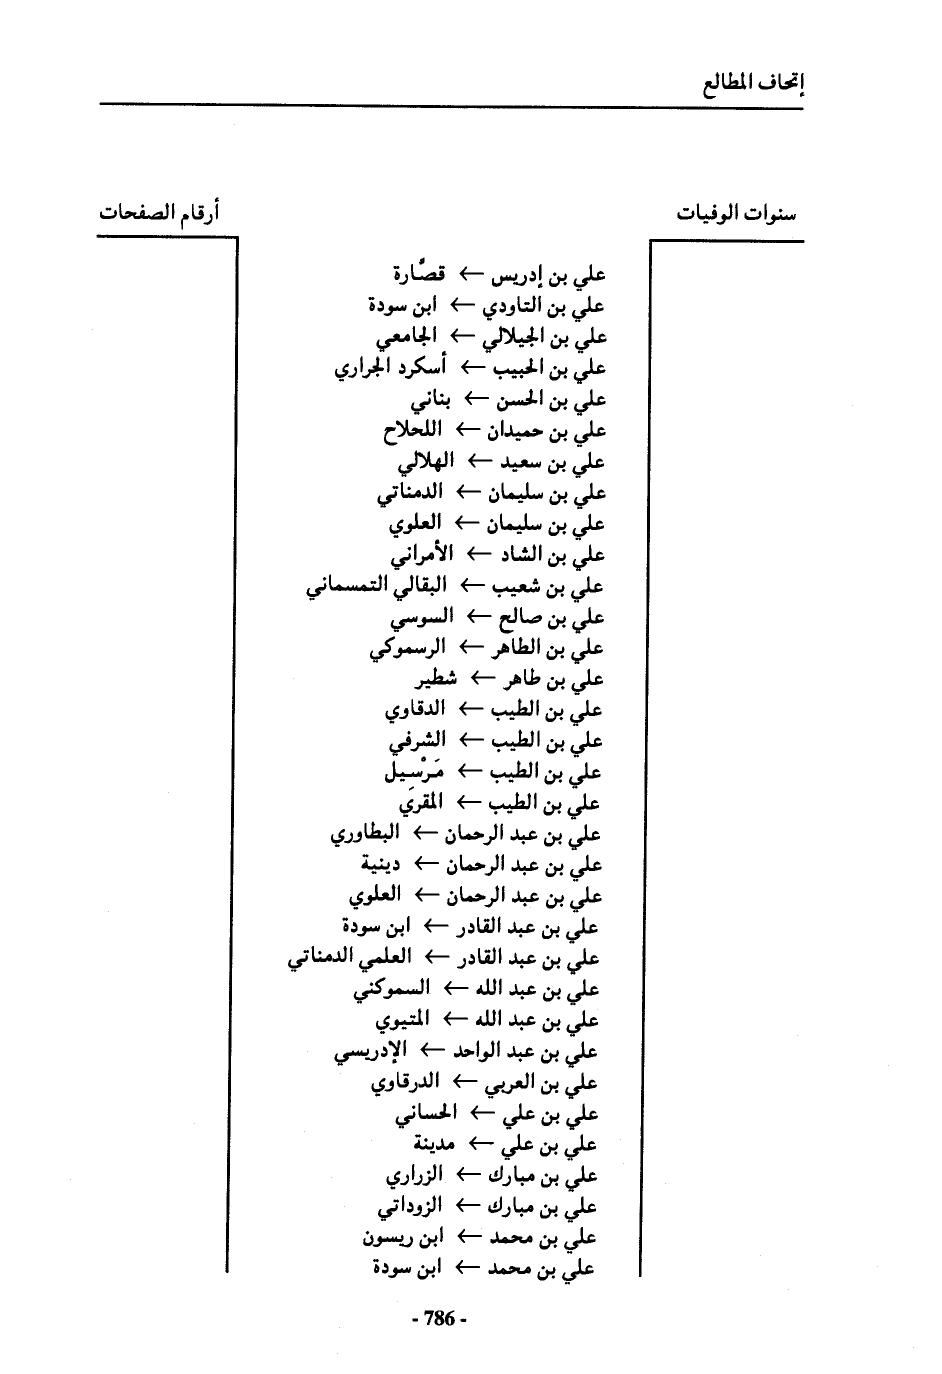 إتحاف المطالع
سنوات الوفيات
أرقام الصفحات
علي بن إدريس ← قصَّارة
علي بن التاودي ← ابن سودة
علي بن الجيلالي ← الجامعي
علي بن الحبيب ← أسكرد الجراري
علي بن الحسن ← بناني
علي بن حميدان ← اللحلاح
علي بن سعيد ← الهلالي
علي بن سليمان ← الدمناتي
علي بن سليمان ← العلوي
علي بن الشاد ← الأمراني
علي بن شعيب ← البقالي التمسماني
علي بن صالح ← السوسي
علي بن الطاهر ← الرسموكي
علي بن طاهر ← شطير
علي بن الطيب ← الدقاوي
علي بن الطيب ← الشرفي
علي بن الطيب ← مَرْسِيل
علي بن الطيب ← المقرَي
علي بن عبد الرحمان ← البطاوري
علي بن عبد الرحمان ← دينية
علي بن عبد الرحمان ← العلوي
علي بن عبد القادر ← ابن سودة
علي بن عبد القادر ← العلمي الدمناتي
علي بن عبد الله ← السموكني
علي بن عبد الله ← المتيوي
علي بن عبد الواحد ← الإدريسي
علي بن العربي ← الدرقاوي
علي بن علي ← الحساني
علي بن علي ← مدينة
علي بن مبارك ← الزراري
علي بن مبارك ← الزوداتي
علي بن محمد ← ابن ريسون
علي بن محمد ← ابن سودة
- 786 -